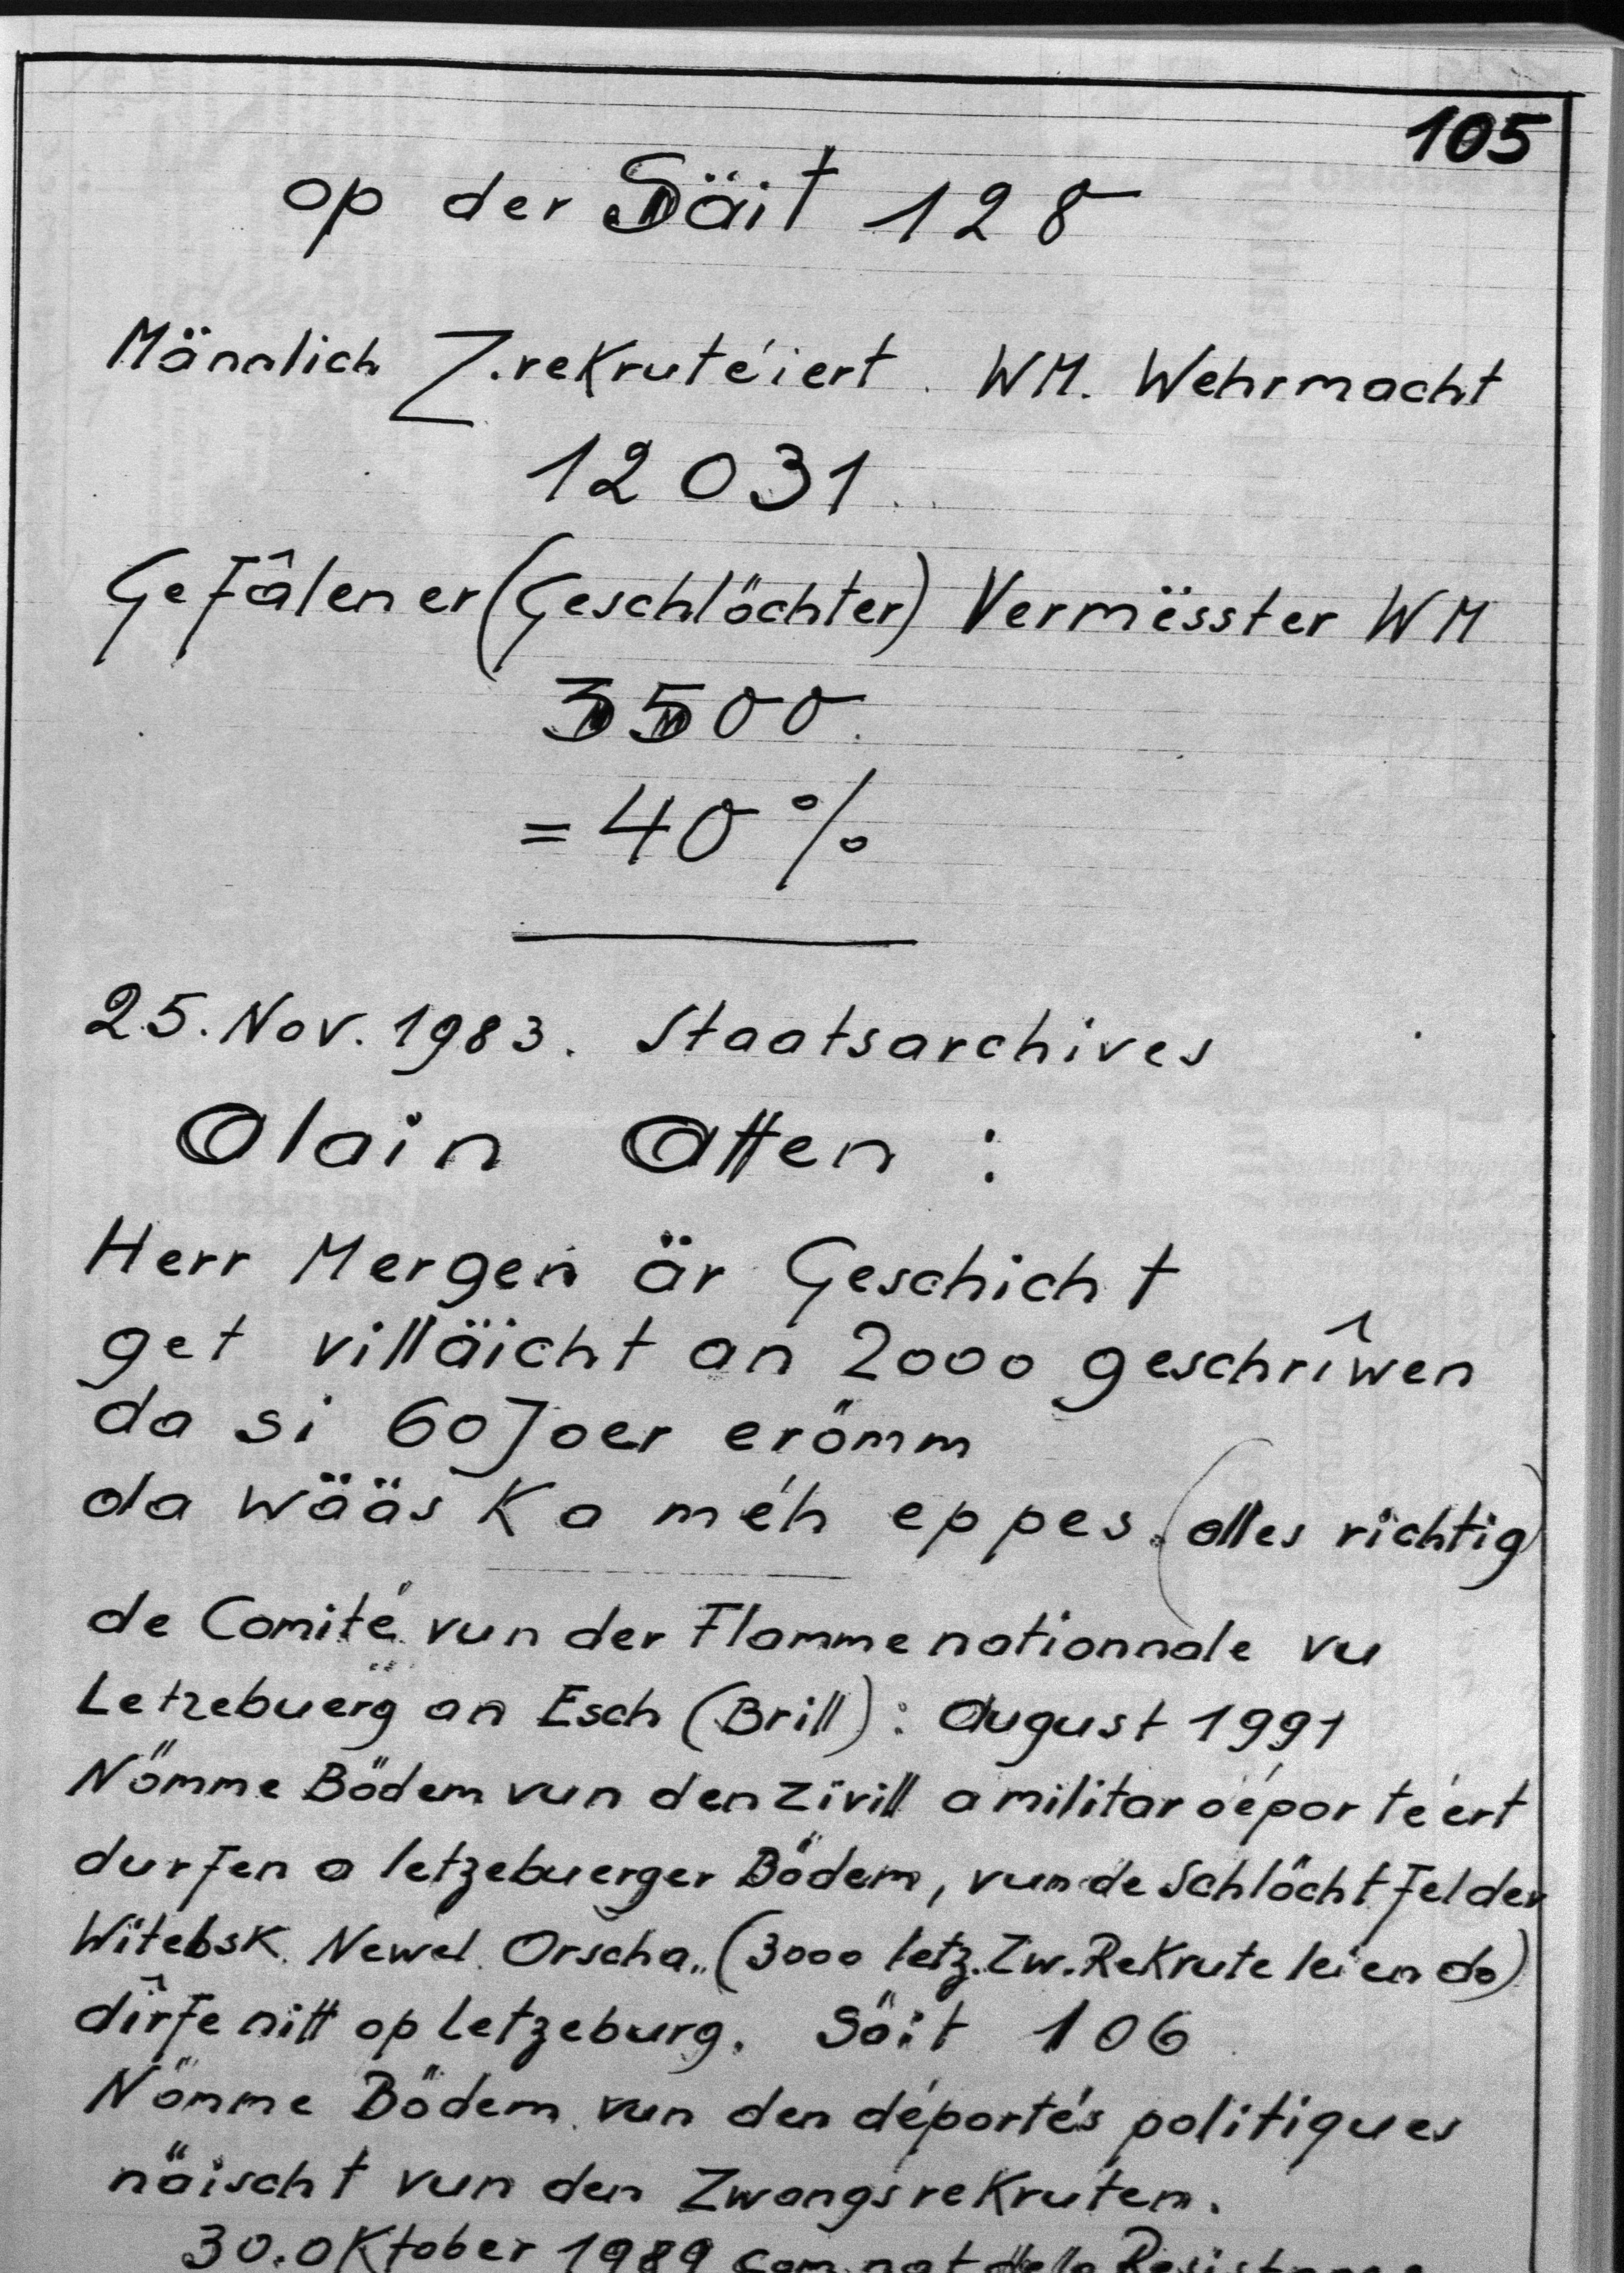 105
op der Säit 128
Männlich Z.rekrutéiert. WM. Wehrmacht
12 031
Gefâlener (Geschlöchter) Vermësster WM
3500.
= 40 %
25. Nov. 1983. Staatsarchives
Alain Atten :
Herr Mergen är Geschicht
get villäicht an 2000 geschrîwen
da si 60 Joer erömm
da wääs Ka méh eppes. (alles richtig)
de Comité vun der Flamme nationnale vu
Letzebuërg an Esch (Brill) : August 1991
Nömme Bödem vun den zivill a militar déportéert
durfen a letzebuerger Bödem, vun de Schlöchtfelder
Witebsk. Newel. Orscha.. (3000 letz. Zw. Rekrute leien do)
dîrfe nitt op Letzeburg. Säit 106
Nömme Bödem vun den déportés politiques
näischt vun den Zwangsrekruten.
30. Oktober 1989